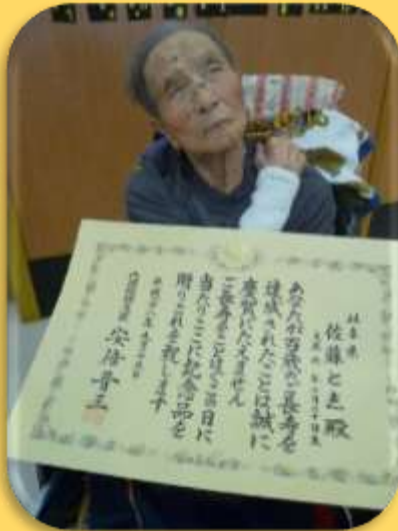 県
佐藤 殿
あなたが百歳の長寿を
達成されたことは誠に
慶賀にたえません
ご長寿をことほぐこの日に
当たりここに記念品を
贈りこれを祝します
平成 年九月十五日
内閣総理大臣 安倍晋三